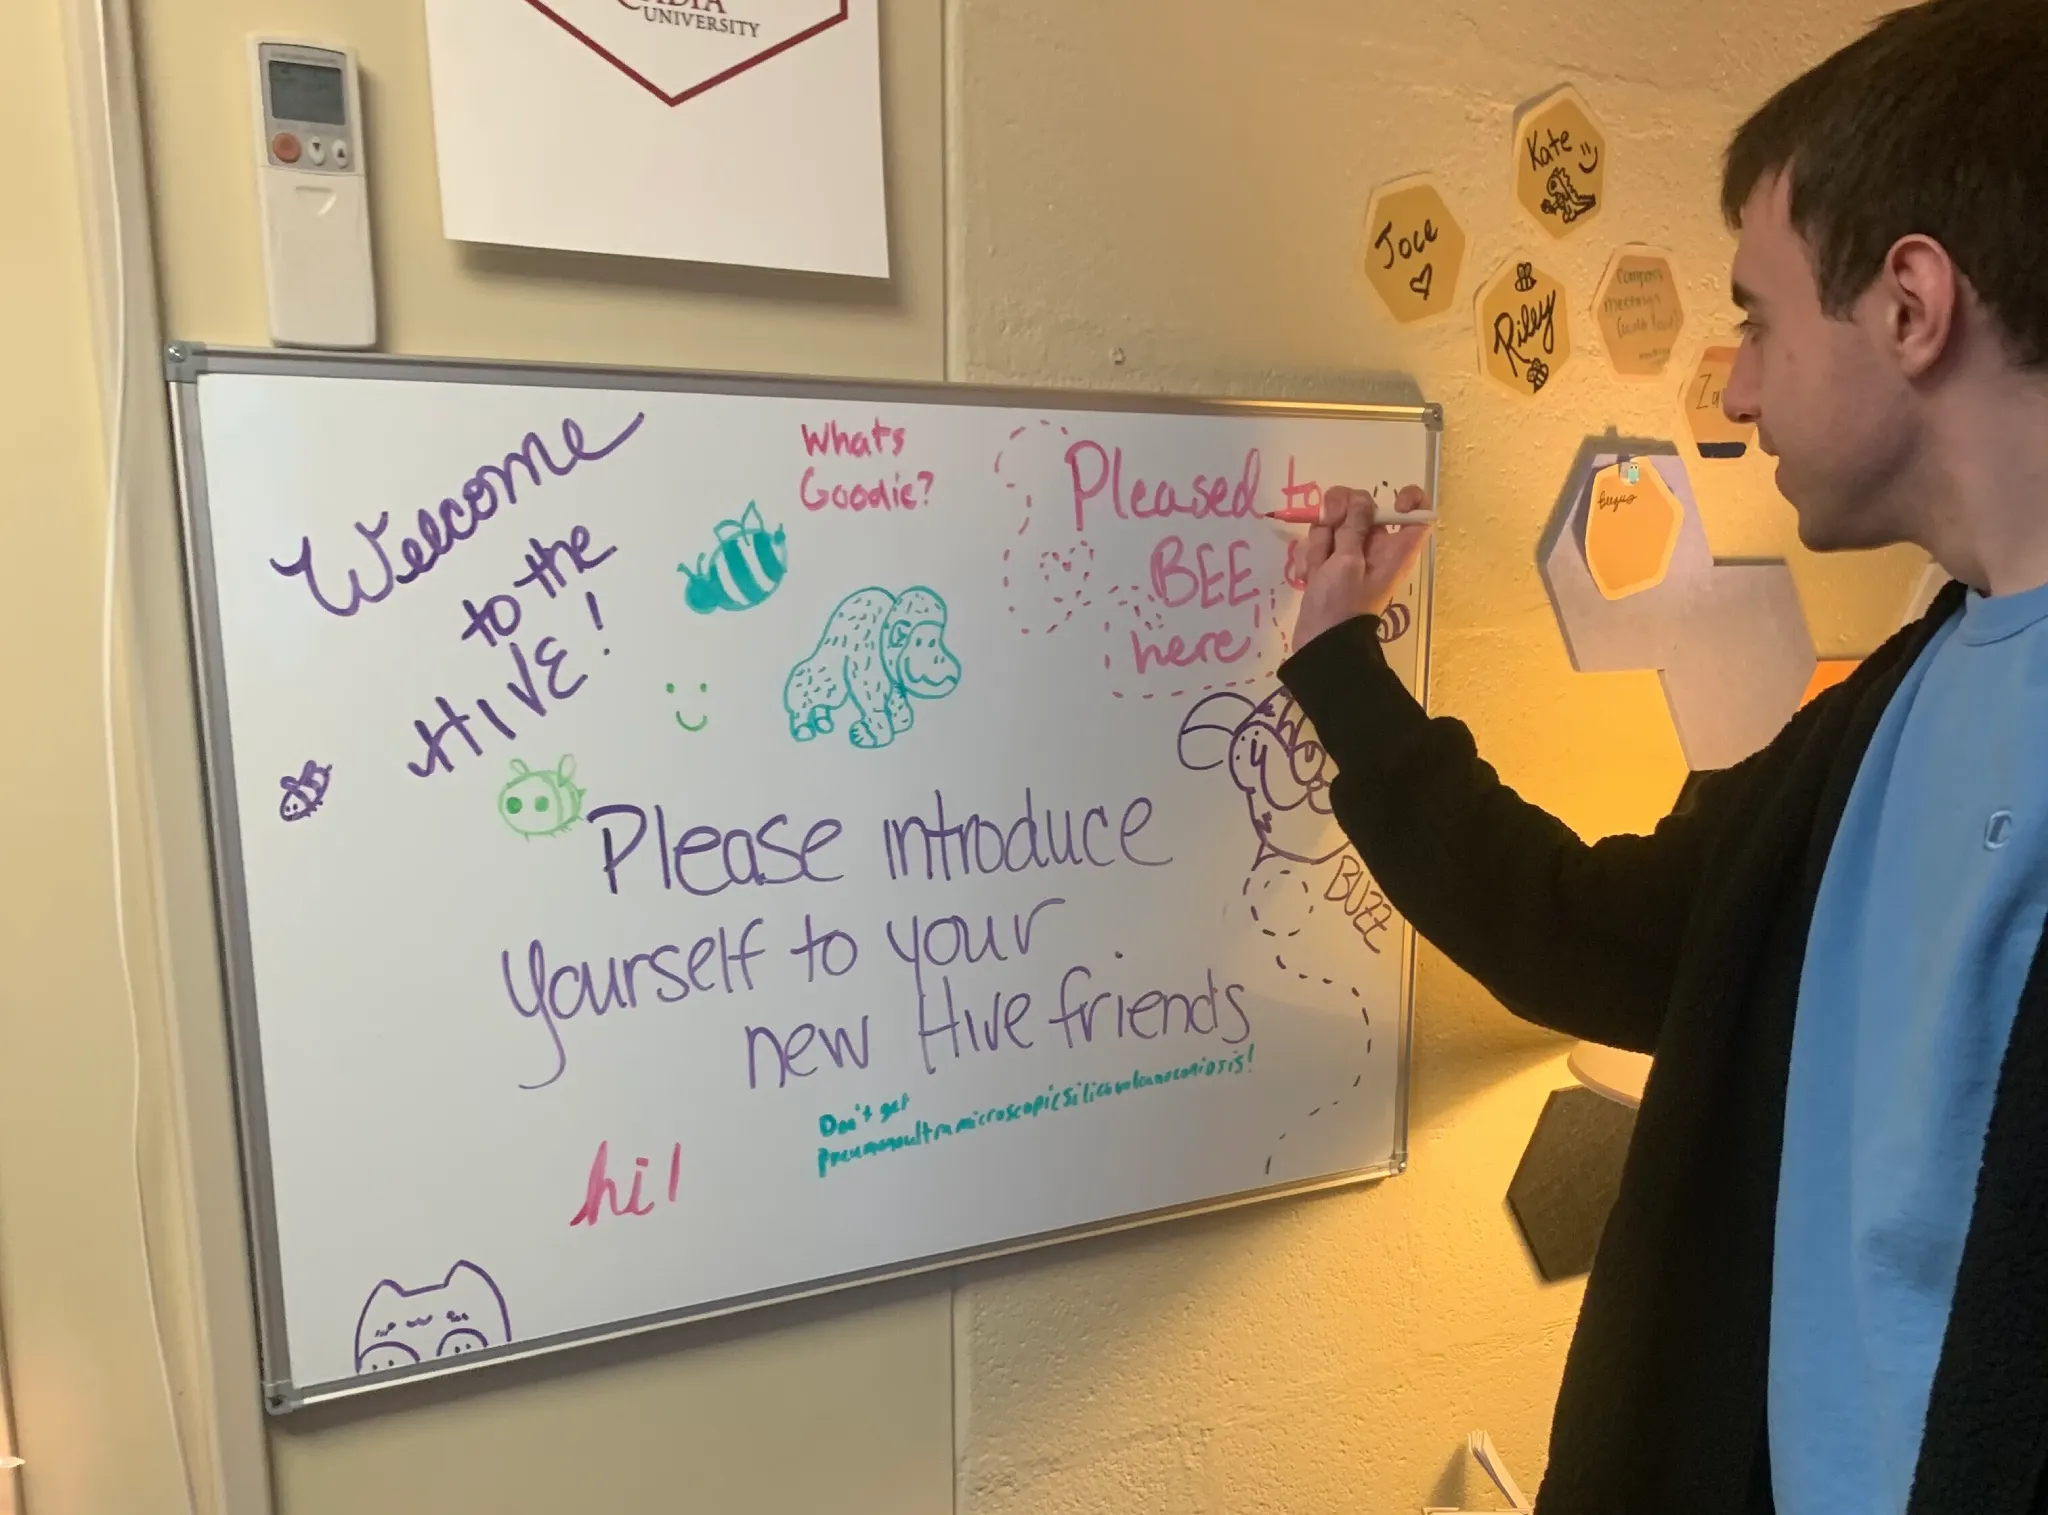 UNIVERSITY
Kate
Joce
Riley
meetings
Welcome
to the
HIVE!
Whats
Goodie?
Pleased to
BEE
here!
Please introduce
yourself to your
new Hive friends
BUZZ
Don't get
pneumonoultramicroscopicsilicovolcanoconiosis!
hi!